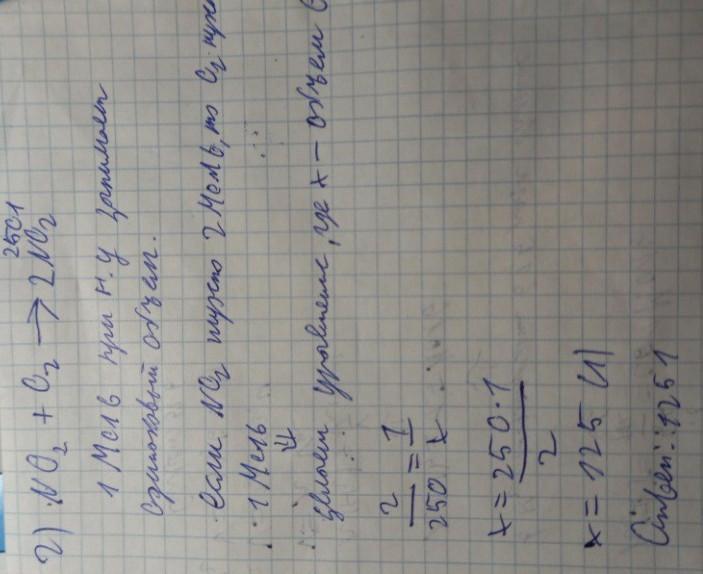 250л
2) NO₂ + O₂ → 2NO₂
1 моль при н.у занимает
одинаковый объем.
если NO₂ нужно 2 моль, то O₂ нуж
1 моль
⇓
делаем уравнение, где x – объем O
2/250 = 1/x
x = 250·1/2
x = 125 (л)
Ответ: 125 л